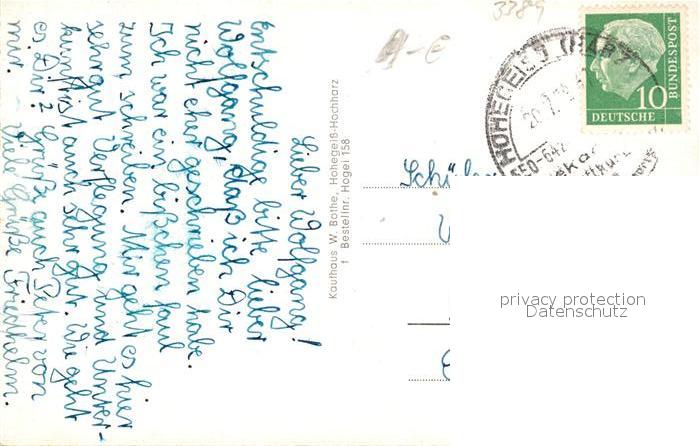 Lieber Wolfgang!
Entschuldige bitte lieber
Wolfgang, daß ich Dir
nicht eher geschrieben habe.
Ich war ein bißchen faul
zum schreiben. Mir geht es hier
sehr gut. Verpflegung und Unter-
kunft ist auch sehr gut. Wie geht
es Dir? Grüße auch Peter von
mir. Viele Grüße Friedhelm.
Kaufhaus W. Bothe, Hohegeiß-Hochharz
† Bestellnr. Hogei 158
3389
HOHEGEISS (HARZ)
Schüler
10
DEUTSCHE
BUNDESPOST
privacy protection
Datenschutz